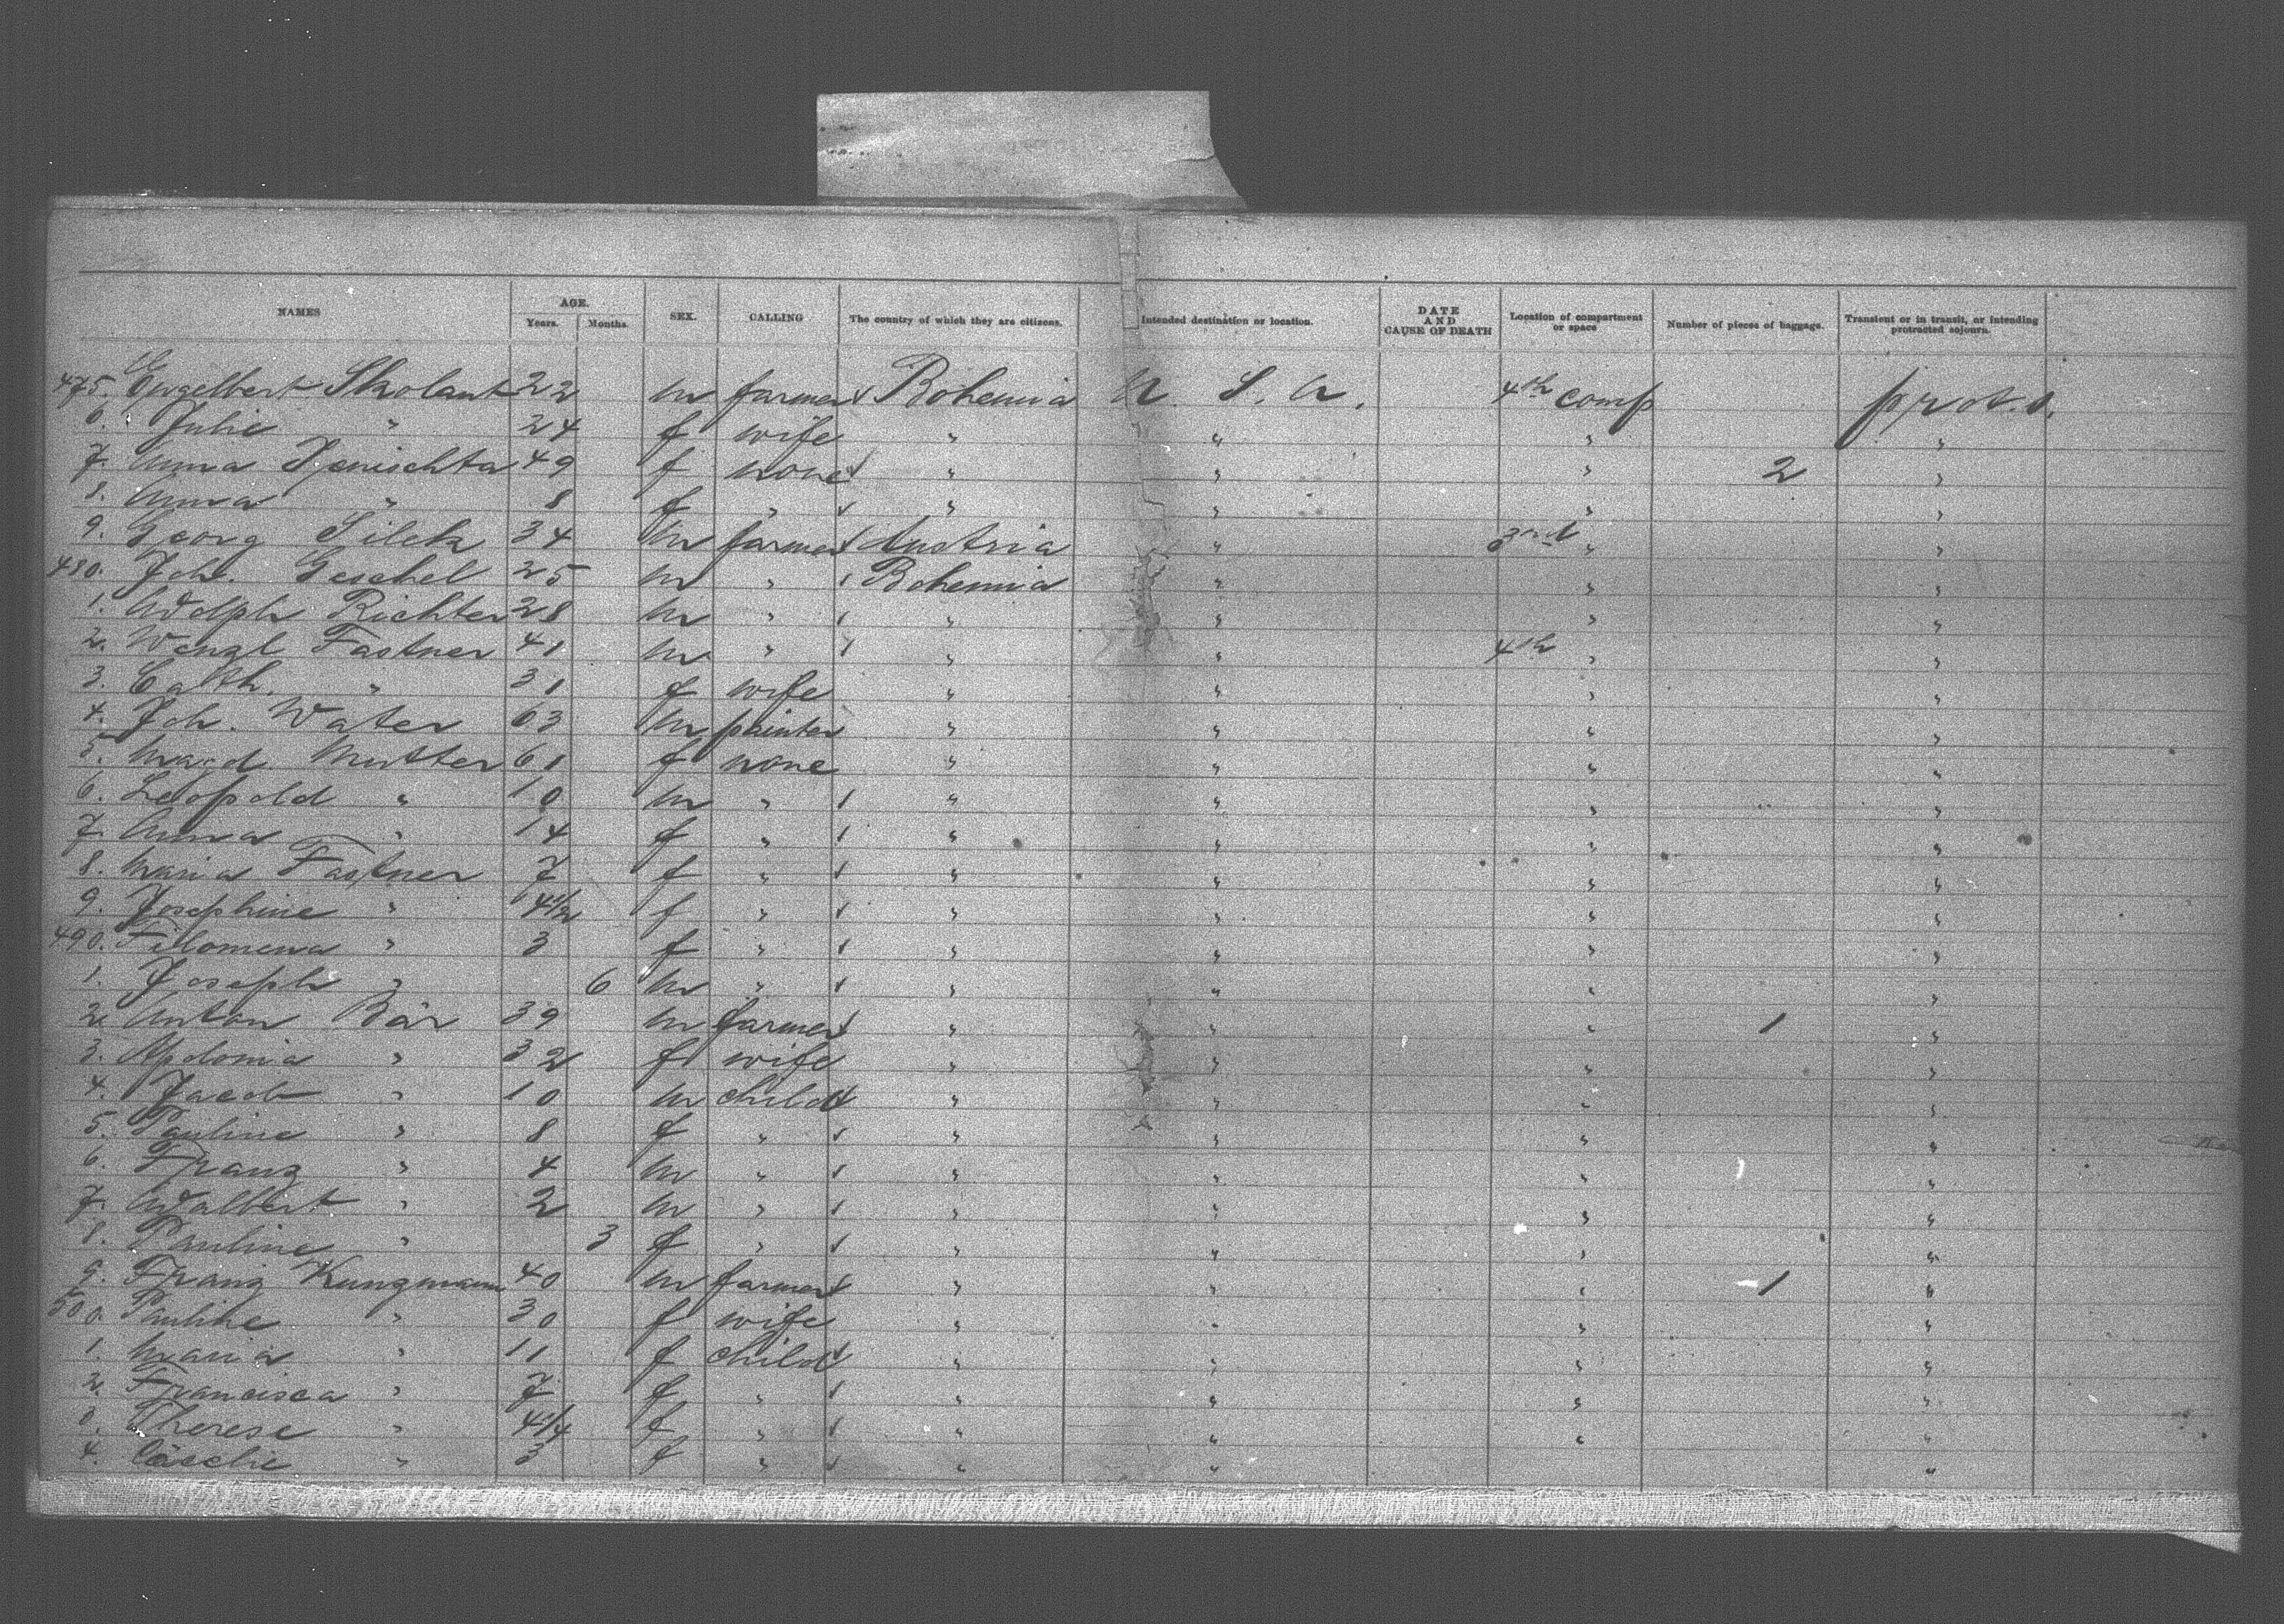 NAMES AGE. Years. Months. SEX. CALLING The country of which they are citizens. Intended destination or location. DATE AND CAUSE OF DEATH Location of compartment or space Number of pieces of baggage. Transient or in transit, or intending protracted sojourn.
475. Engelbert Skolaut 22 m farmer Bohemia U. S. A. 4th comp prot. s.
6. Julie " 24 f wife " " " "
7. Anna 49 f none " " " 2 "
8. Anna " 8 f " " " " "
9. Georg Silek 34 m farmer Austria " 3rd " "
480. Joh. Geschel 25 m " Bohemia " " "
1. Adolph Richter 28 m " " " " "
2. Wenzl Fastner 41 m " " " 4th " "
3. Cath. " 31 f wife " " " "
4. Joh. Water 63 m painter " " " "
5. Magd. Mutter 61 f none " " " "
6. Leopold " 10 m " " " " "
7. Anna " 14 f " " " " "
8. Maria Fastner 7 f " " " " "
9. Josephine " 4 1/2 f " " " " "
490. Filomena " 3 f " " " " "
1. Joseph " 6 m " " " " "
2. Anton Bär 39 m farmer " " " 1 "
3. Apolonia " 32 f wife " " " "
4. Jacob " 10 m child " " " "
5. Pauline " 8 f " " " " "
6. Franz " 4 m " " " " "
7. Adalbert " 2 m " " " " "
8. Pauline " 3 f " " " " "
9. Franz Kungmann 40 m farmer " " " 1 "
500. Pauline " 30 f wife " " " "
1. Maria " 11 f child " " " "
2. Francisca " 7 f " " " " "
3. Therese " 4 1/4 f " " " " "
4. Cäcelie " 3 f " " " "